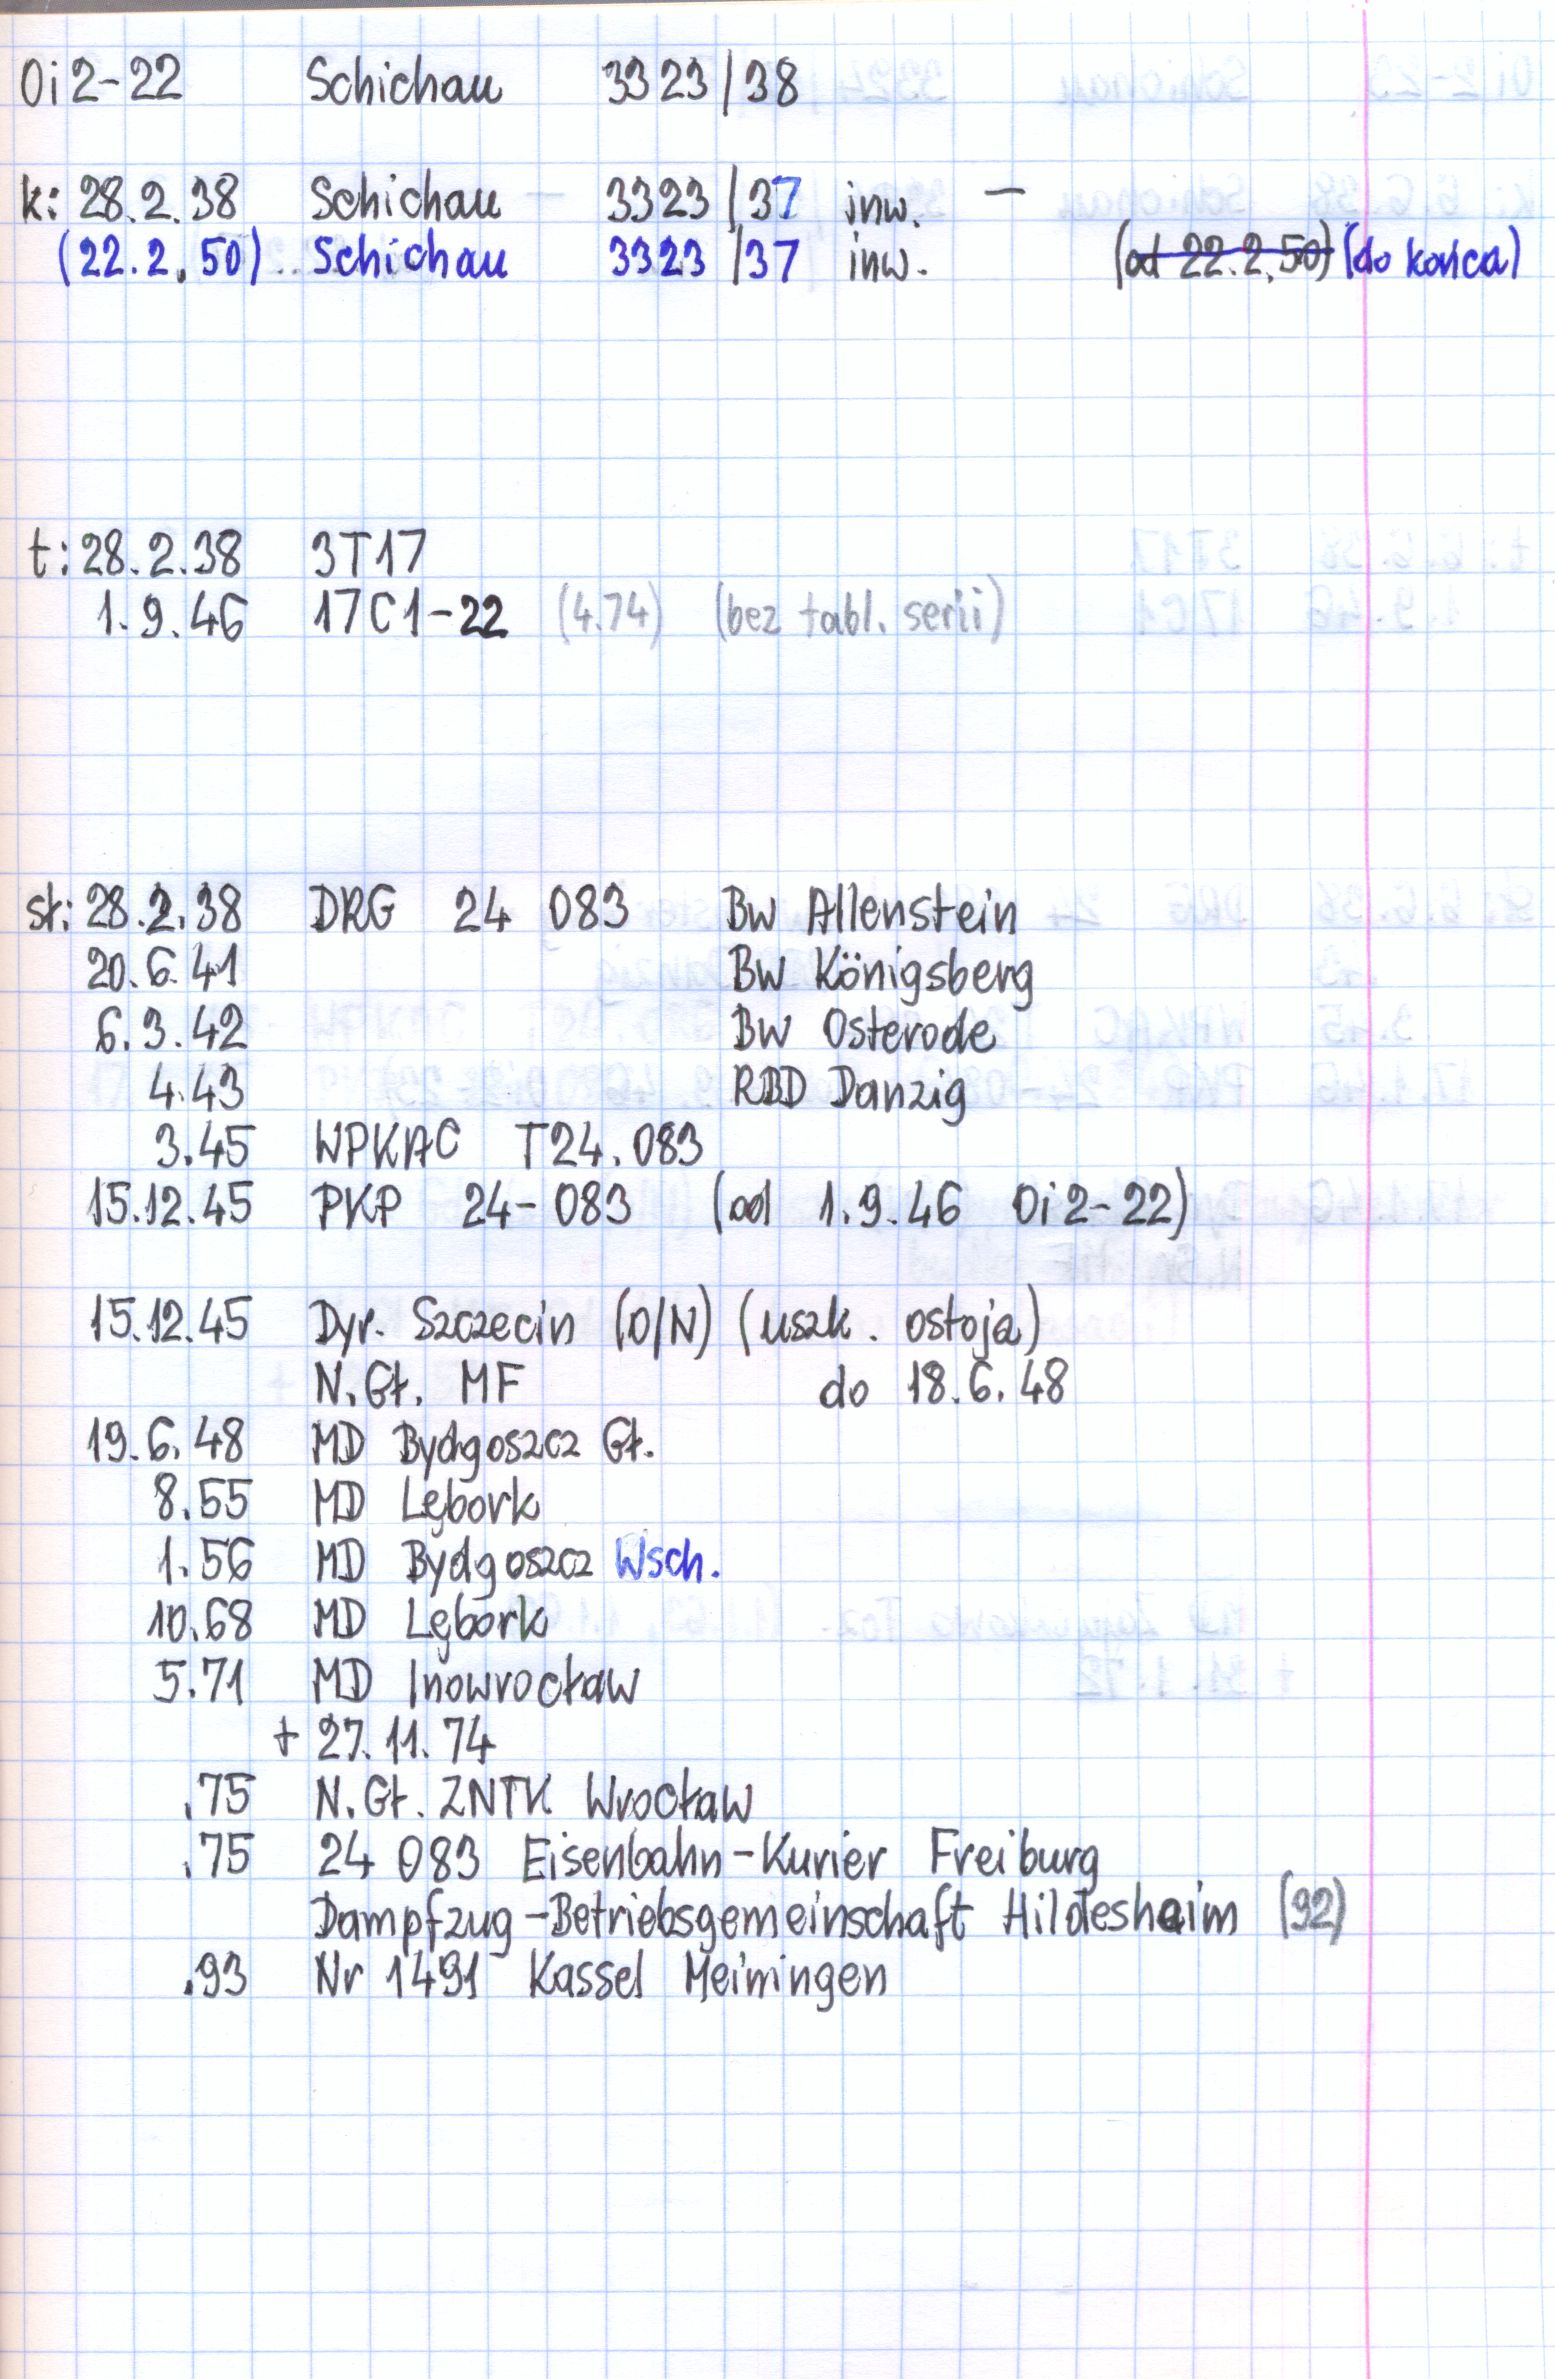 Oi2-22 Schichau 3323/38
k: 28.2.38 Schichau 3323/37 inw. —
(22.2.50) Schichau 3323/37 inw. (od 22.2.50) (do końca)
t: 28.2.38 3T17
1.9.46 17C1-22 (4.74) (bez tabl. serii)
st: 28.2.38 DRG 24 083 Bw Allenstein
20.6.41 Bw Königsberg
6.3.42 Bw Osterode
4.43 RBD Danzig
3.45 WPKAC T24.083
15.12.45 PKP 24-083 (od 1.9.46 Oi2-22)
15.12.45 Dyr. Szczecin (O/N) (uszk. ostoja)
N.Gł. MF do 18.6.48
19.6.48 MD Bydgoszcz Gł.
8.55 MD Lębork
1.56 MD Bydgoszcz Wsch.
10.68 MD Lębork
5.71 MD Inowrocław
+ 27.11.74
.75 N.Gł. ZNTK Wrocław
.75 24 083 Eisenbahn-Kurier Freiburg
Dampfzug-Betriebsgemeinschaft Hildesheim (92)
.93 Nr 1491 Kassel Meiningen